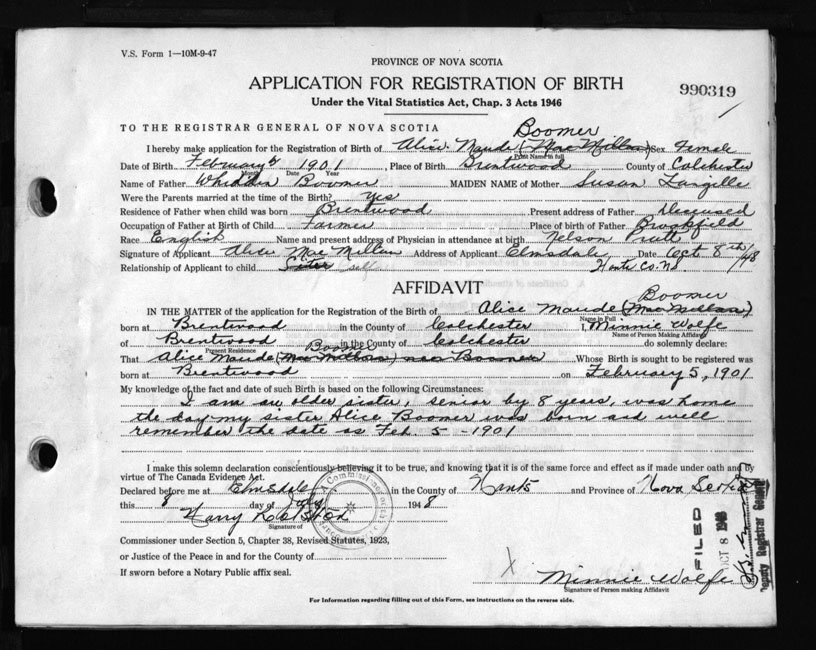 V.S. Form 1—10M-9-47
PROVINCE OF NOVA SCOTIA
APPLICATION FOR REGISTRATION OF BIRTH
990319
Under the Vital Statistics Act, Chap. 3 Acts 1946
TO THE REGISTRAR GENERAL OF NOVA SCOTIA
Boomer
I hereby make application for the Registration of Birth of Alice Maude (MacMillan) Sex Female
Print Name in full
Date of Birth February 1901, Place of Birth Brentwood County of Colchester
Month Date Year
Name of Father Whidden Boomer MAIDEN NAME of Mother Susan Langille
Were the Parents married at the time of the Birth? Yes
Residence of Father when child was born Brentwood Present address of Father Deceased
Occupation of Father at Birth of Child Farmer Place of birth of Father Brookfield
Race English Name and present address of Physician in attendance at birth Nelson
Signature of Applicant Alice MacMillan Address of Applicant Elmsdale Date Oct 8th/48
Relationship of Applicant to child Sister self Hants Co. NS
AFFIDAVIT
Boomer
IN THE MATTER of the application for the Registration of the Birth of Alice Maude (MacMillan)
Name in Full
born at Brentwood in the County of Colchester I, Minnie Wolfe
Name of Person Making Affidavit
of Brentwood in the County of Colchester do solemnly declare:
Present Residence
Boomer
That Alice Maude (MacMillan) nee Boomer Whose Birth is sought to be registered was
born at Brentwood on February 5, 1901
My knowledge of the fact and date of such Birth is based on the following Circumstances:
I am an older sister, senior by 8 years, was home
the day my sister Alice Boomer was born and well
remember the date as Feb. 5 - 1901
I make this solemn declaration conscientiously believing it to be true, and knowing that it is of the same force and effect as if made under oath and by
virtue of The Canada Evidence Act.
Declared before me at Elmsdale in the County of Hants and Province of Nova Scotia
this 8 day of July 1948
Harry
Signature of
A Commissioner of
Commissioner under Section 5, Chapter 38, Revised Statutes, 1923,
or Justice of the Peace in and for the County of
If sworn before a Notary Public affix seal.
FILED
OCT 8 1948
Deputy Registrar General
X Minnie Wolfe
Signature of Person making Affidavit
For Information regarding filling out of this Form, see instructions on the reverse side.